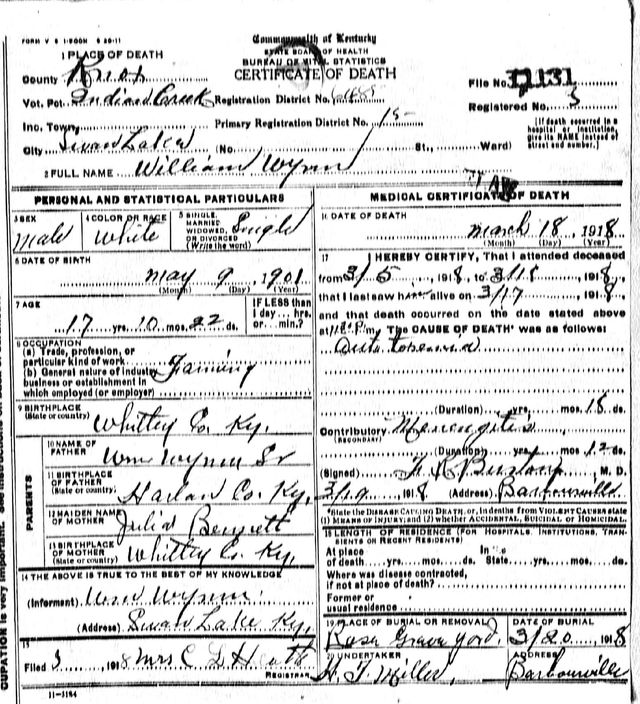 FORM V S 1-500M 8-20-11
Commonwealth of Kentucky
STATE BOARD OF HEALTH
BUREAU OF VITAL STATISTICS
CERTIFICATE OF DEATH
1 PLACE OF DEATH
County Knox
Vot. Pct. Indian Creek Registration District No.
File No. 11131
Inc. Town, Primary Registration District No. 15
Registered No. 3
City Swan Lake (No. St., Ward)
[If death occurred in a hospital or institution, give its NAME instead of street and number.]
2 FULL NAME William Wynn
PERSONAL AND STATISTICAL PARTICULARS
3 SEX
male
4 COLOR OR RACE
White
5 SINGLE, MARRIED WIDOWED, OR DIVORCED (Write the word)
Single
6 DATE OF BIRTH
may 9, 1901
(Month) (Day) (Year)
7 AGE
17 yrs. 10 mos. 22 ds.
IF LESS than 1 day... hrs. or... min.?
8 OCCUPATION
(a) Trade, profession, or particular kind of work
(b) General nature of industry business or establishment in which employed (or employer)
Farming
9 BIRTHPLACE
(State or country)
Whitley Co. Ky.
PARENTS
10 NAME OF FATHER
Wm Wynn Sr
11 BIRTHPLACE OF FATHER
(State or country)
Harlan Co. Ky.
12 MAIDEN NAME OF MOTHER
Julia Bennett
13 BIRTHPLACE OF MOTHER
(State or country)
Whitley Co. Ky.
14 THE ABOVE IS TRUE TO THE BEST OF MY KNOWLEDGE
(Informant) Wm Wynn
(Address) Swan Lake Ky,
15
Filed 3 1918 Mrs C D H
REGISTRAR
11-3184
MEDICAL CERTIFICATE OF DEATH
16 DATE OF DEATH
march 18, 1918
(Month) (Day) (Year)
17 I HEREBY CERTIFY, That I attended deceased
from 3/5 1918, to 3/18 1918,
that I last saw h alive on 3/17 1918,
and that death occurred on the date stated above
at m. The CAUSE OF DEATH* was as follows:
Auto toxemia
(Duration) yrs. mos. 18 ds.
Contributory Menengites
(SECONDARY)
(Duration) yrs. mos. 12 ds.
(Signed) M. D.
3/19 1918 (Address) Barbourville
*State the DISEASE CAUSING DEATH, or, in deaths from VIOLENT CAUSES state (1) MEANS OF INJURY; and (2) whether ACCIDENTAL, SUICIDAL OR HOMICIDAL.
18 LENGTH OF RESIDENCE (FOR HOSPITALS, INSTITUTIONS, TRANSIENTS OR RECENT RESIDENTS)
At place of death yrs. mos. ds. In the State yrs. mos. ds.
Where was disease contracted,
if not at place of death?
Former or
usual residence
19 PLACE OF BURIAL OR REMOVAL
Rose Grave yord,
DATE OF BURIAL
3/20, 1918
20 UNDERTAKER
H. T. Miller,
ADDRESS
Barbourville